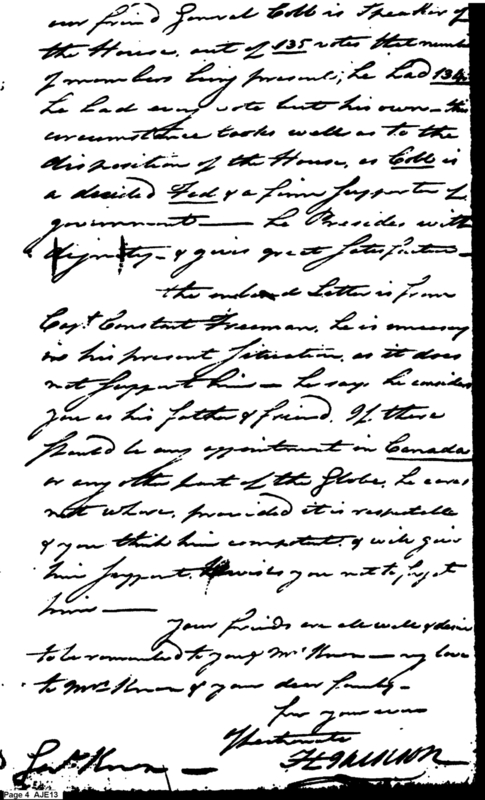 our friend General Cobb is Speaker of
the House, out of 135 votes that number
of members being present; he had 134;
he had every vote but his own – this
circumstance looks well as to the
disposition of the House, as Cobb is
a decided Fed & a firm Supporter of
government — he Presides with
dignity – & gives great satisfaction –
the enclosed Letter is from
Capt. Constant Freeman, he is uneasy
in his present situation, as it does
not support him – he says he considers
you as his father & friend. If there
should be any appointment in Canada
or any other part of the Globe, he cares
not where, provided it is respectable
& you think him competent, & will give
him support. He wishes you not to forget
him —
Your friends are all well & desire
to be remembered to you & Mrs Knox – my love
to Mrs Knox & your dear family –
I am yours ever
Affectionately
H JACKSON
Genl. Knox —
Page 4 AJE13